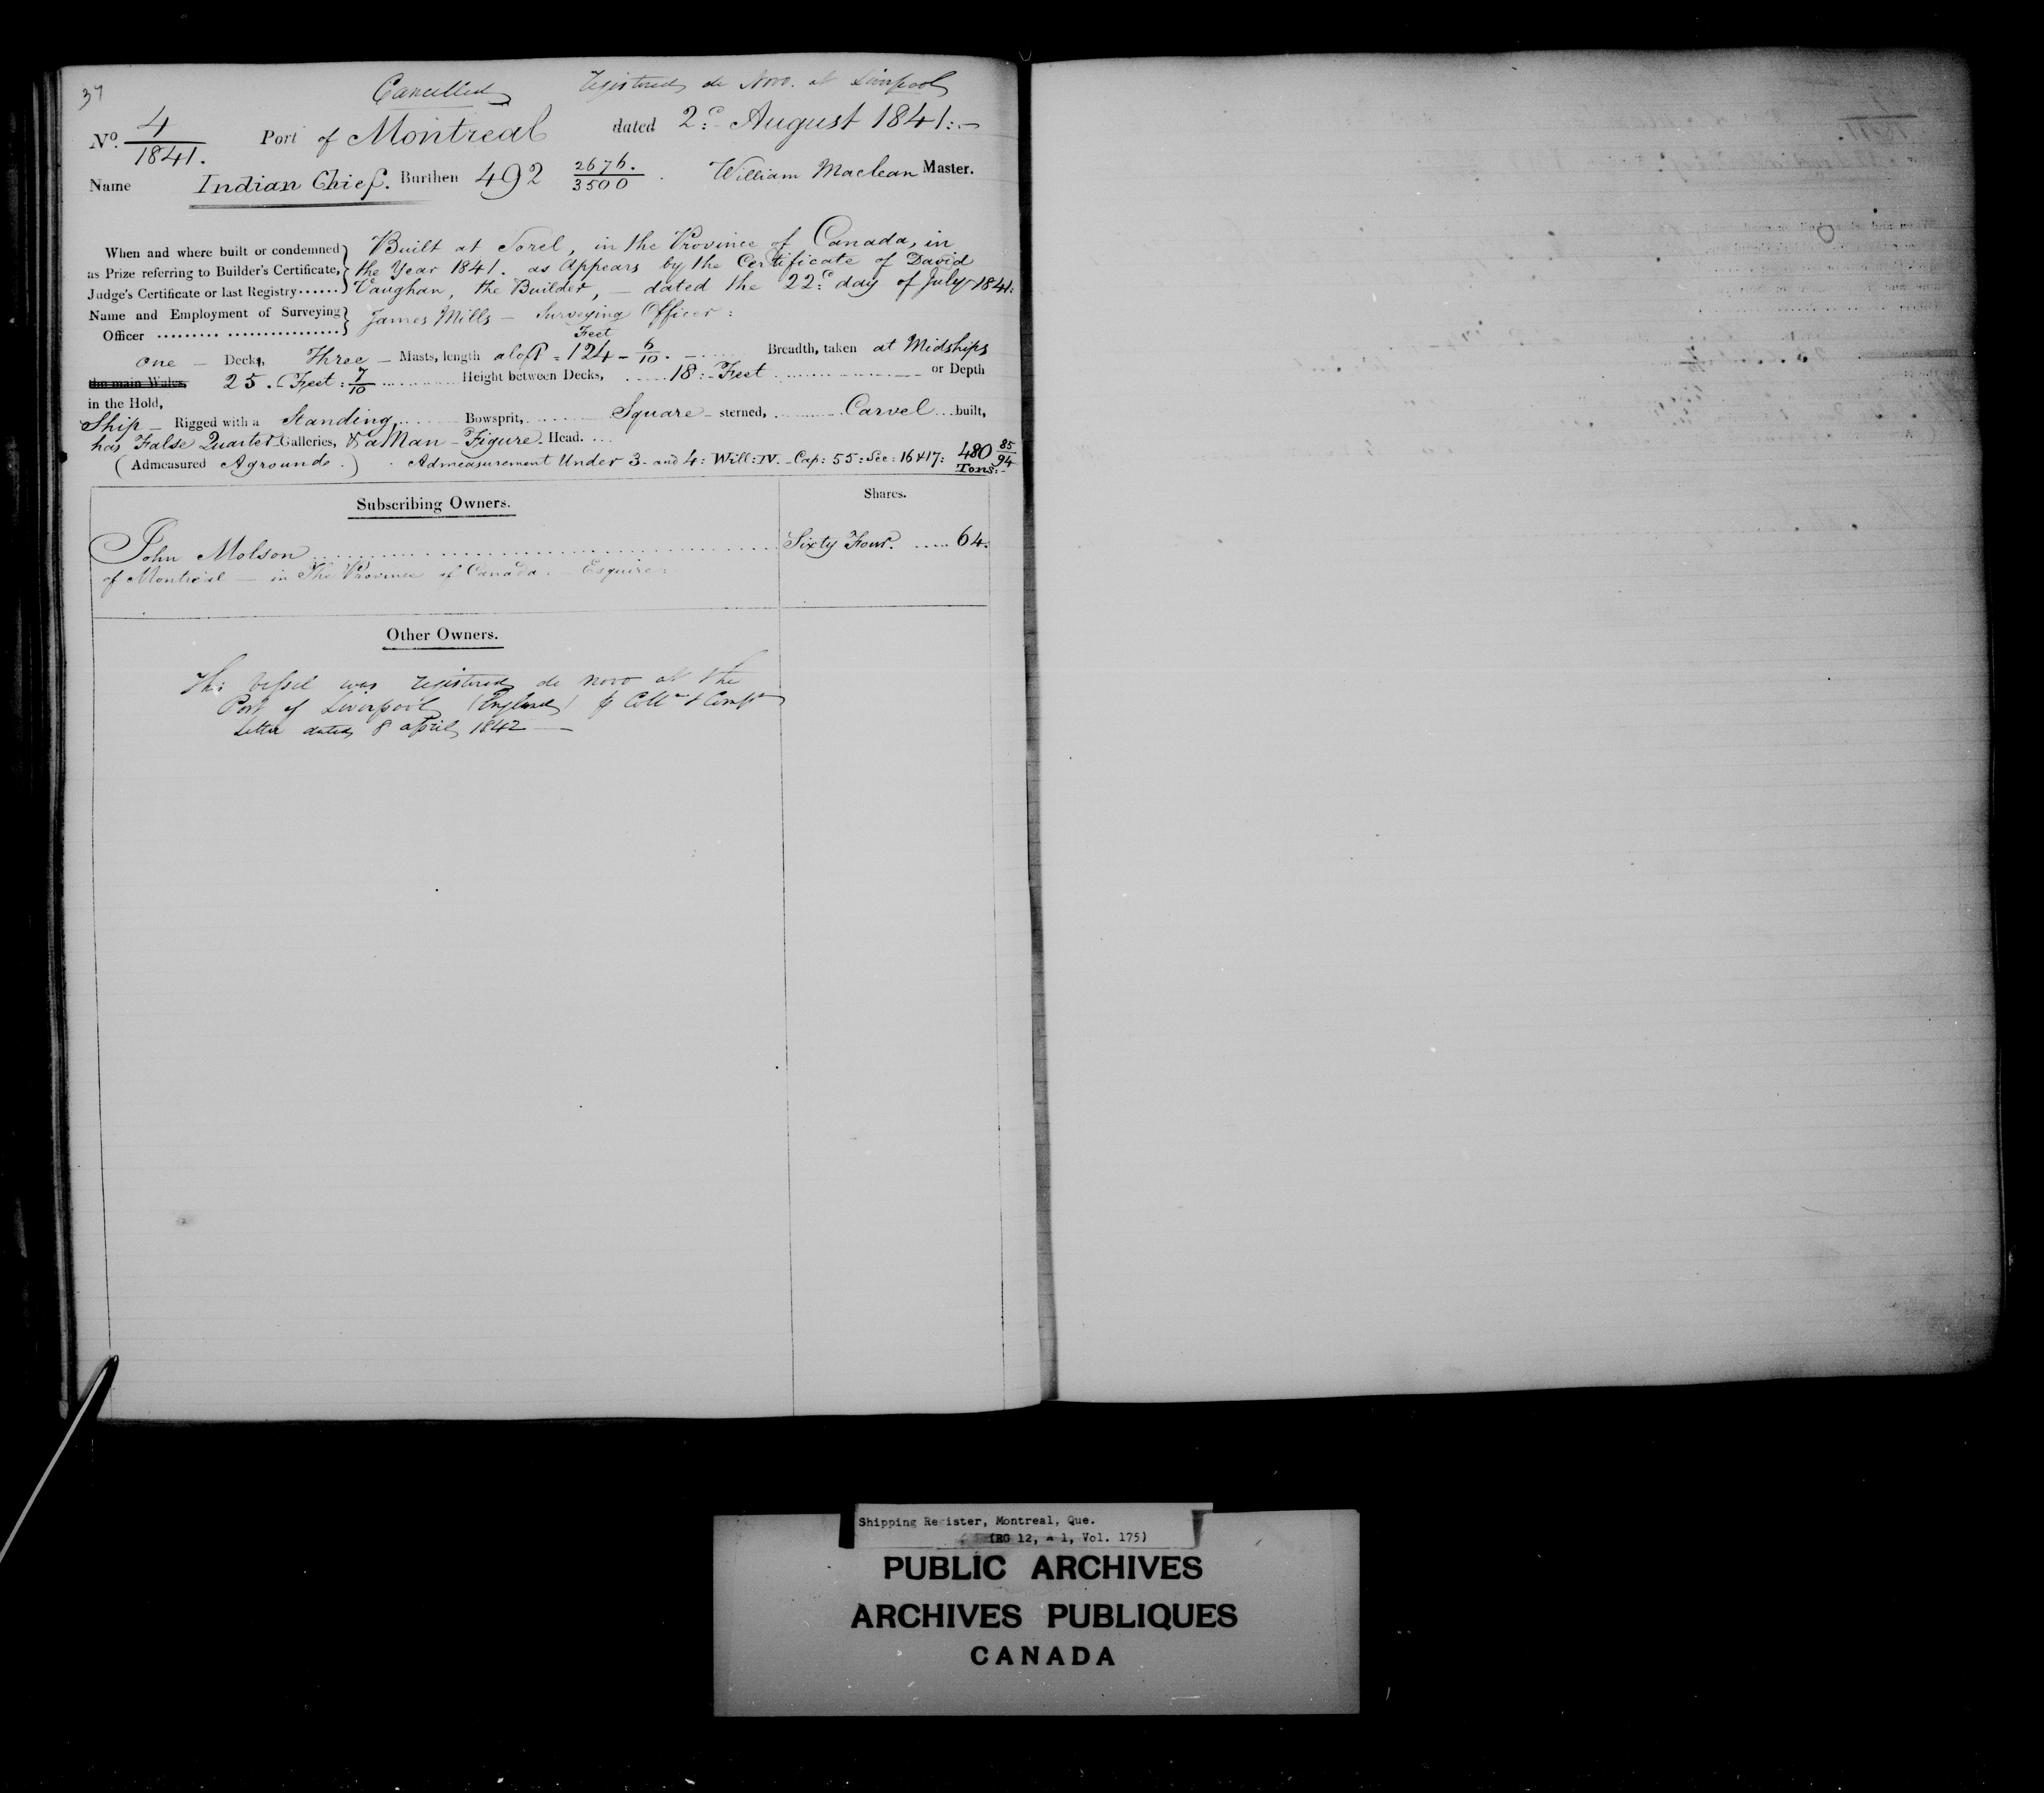 37
Cancelled registered de Novo. at Liverpool
No. 4/1841. Port of Montreal dated 2d August 1841:-
Name Indian Chief. Burthen 492 2676/3500. William Maclean Master.
When and where built or condemned Built at Sorel, in the Province of Canada, in
as Prize referring to Builder's Certificate, the Year 1841. as Appears by the Certificate of David
Judge's Certificate or last Registry...... Vaughan, the Builder, - dated the 22d day of July 1841:
Name and Employment of Surveying James Mills - Surveying Officer:
Officer
Feet
one - Decks, Three - Masts, length aloft = 124 - 6/10. Breadth, taken at Midships
the main Wales, 25. Feet: 7/10 Height between Decks, 18:- Feet or Depth
in the Hold,
Ship - Rigged with a Standing, Bowsprit, Square - sterned, Carvel built,
has False Quarter Galleries, & a Man - Figure - Head.
(Admeasured Aground.) Admeasurement Under 3- and 4: Will: IV. - Cap: 55: Sec: 16 & 17: 480 85/94
Tons:-
Subscribing Owners. Shares.
John Molson Sixty Four. 64:
of Montreal - in The Province of Canada. - Esquire:
Other Owners.
This Vessel was registered de novo at the
Port of Liverpool (England) p Collr & Compr
letter dated 8 april 1842 -
Shipping Register, Montreal, Que.
(RG 12, A 1, Vol. 175)
PUBLIC ARCHIVES
ARCHIVES PUBLIQUES
CANADA